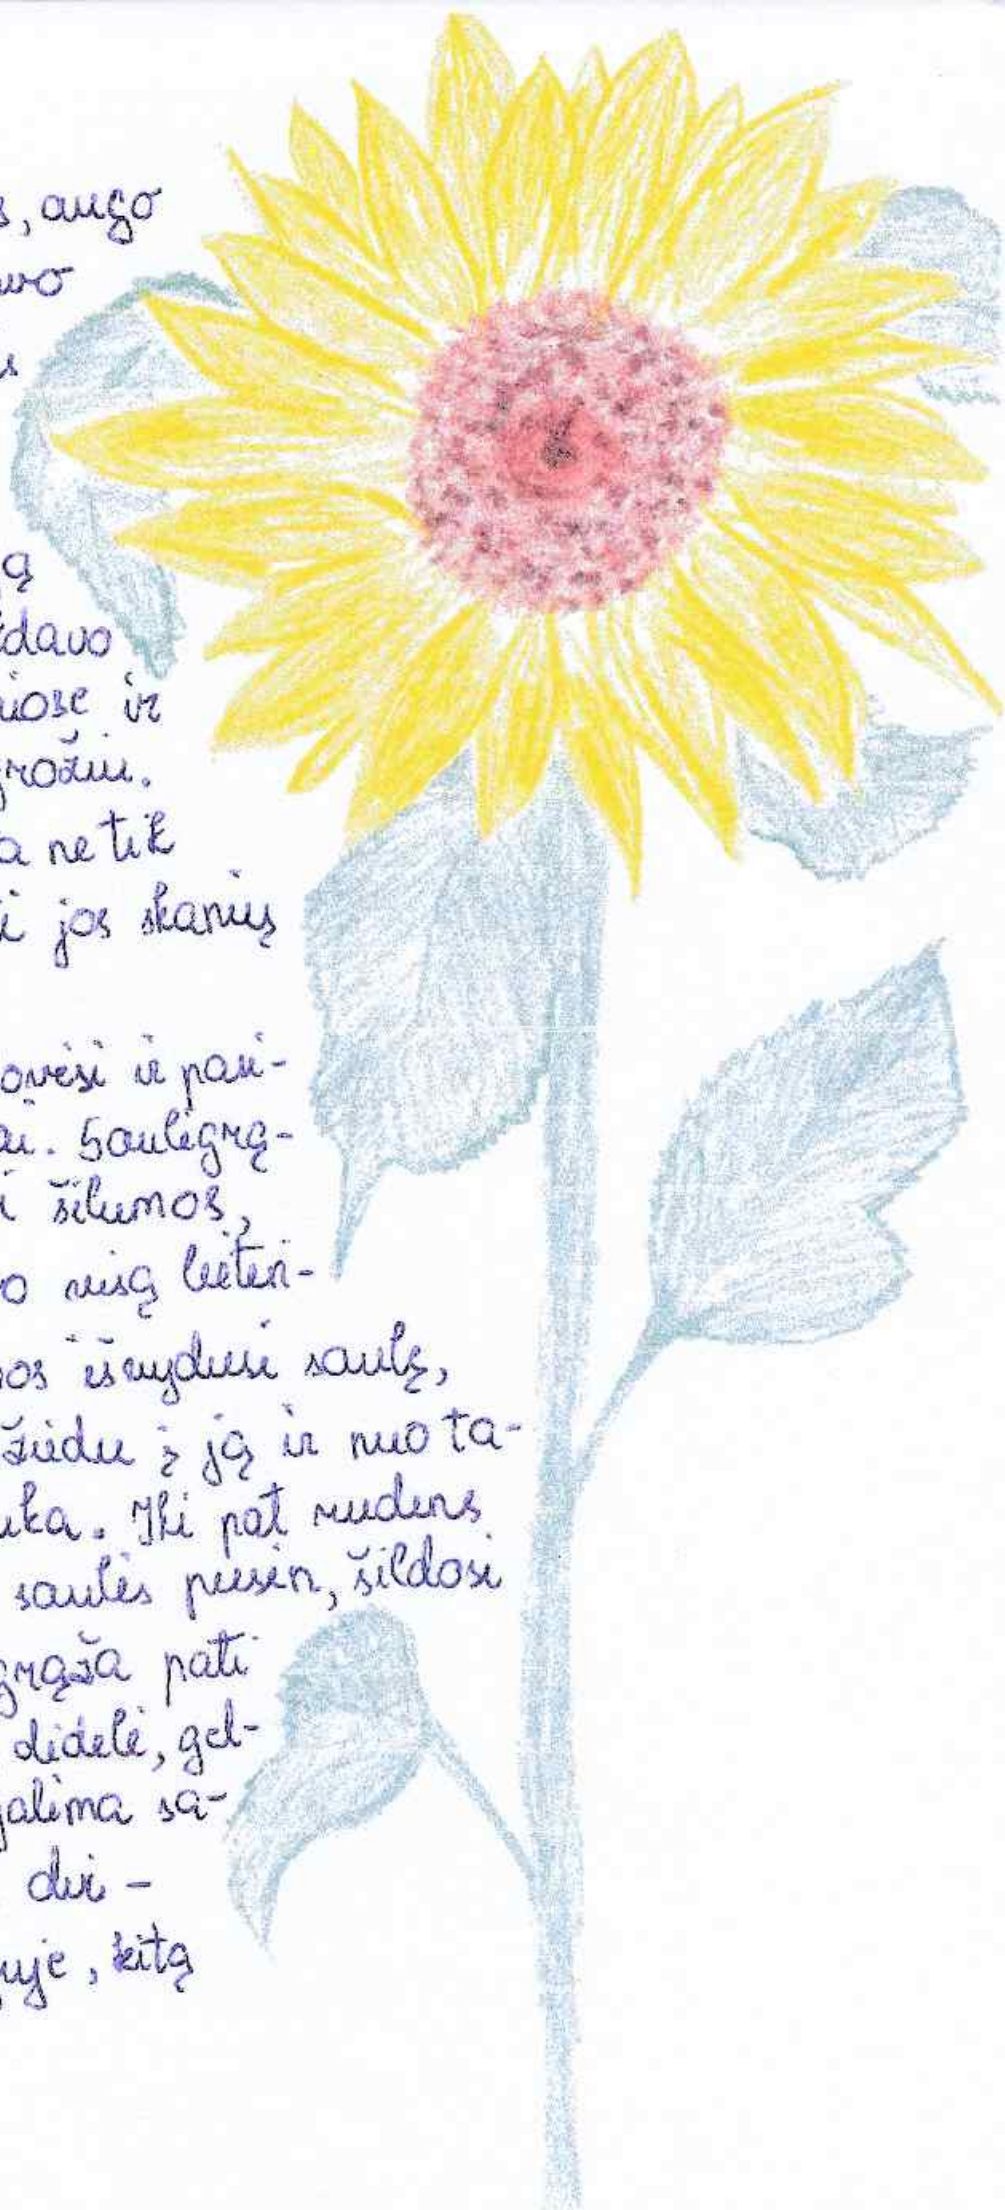 s, augo
vo
u
ą
davo
iose ir
grožiu.
a ne tik
i jos skanių
ovėsi ir pasi-
ai. Saulėgrą-
i šilumos,
o visą lietin-
os išvydusi saulę,
žiedu į ją ir nuo ta-
uka. Iki pat rudens
saulės pusėn, šildosi
grąža pati
didelė, gel-
galima sa-
dvi -
uje, kitą